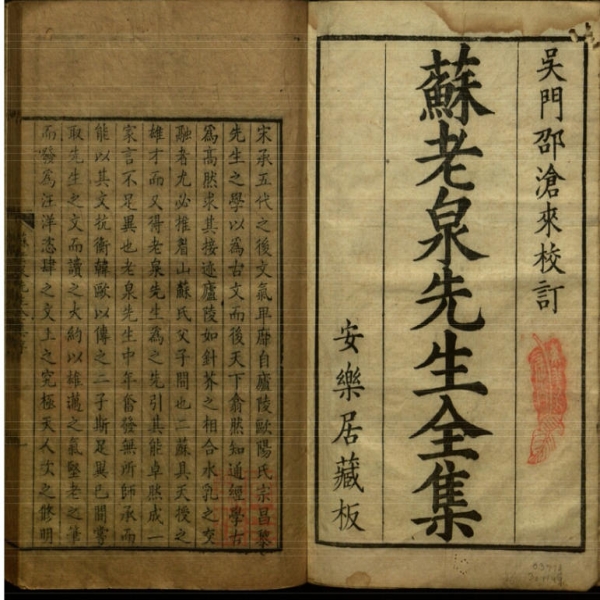 吳門邵滄來校訂
蘇老泉先生全集
安樂居藏板
宋承五代之後文氣卑靡自廬陵歐陽氏宗昌黎
先生之學以為古文而後天下翕然知通經學古
為高然求其接迹廬陵如針芥之相合水乳之交
融者尤必推眉山蘇氏父子間也二蘇具天授之
雄才而又得老泉先生為之先引其能卓然成一
家言不足異也老泉先生中年奮發無所師承而
能以其文抗衡韓歐以傳之二子斯足異已間嘗
取先生之文而讀之大約以雄邁之氣堅老之筆
而發為汪洋恣肆之文上之究極天人次之脩明